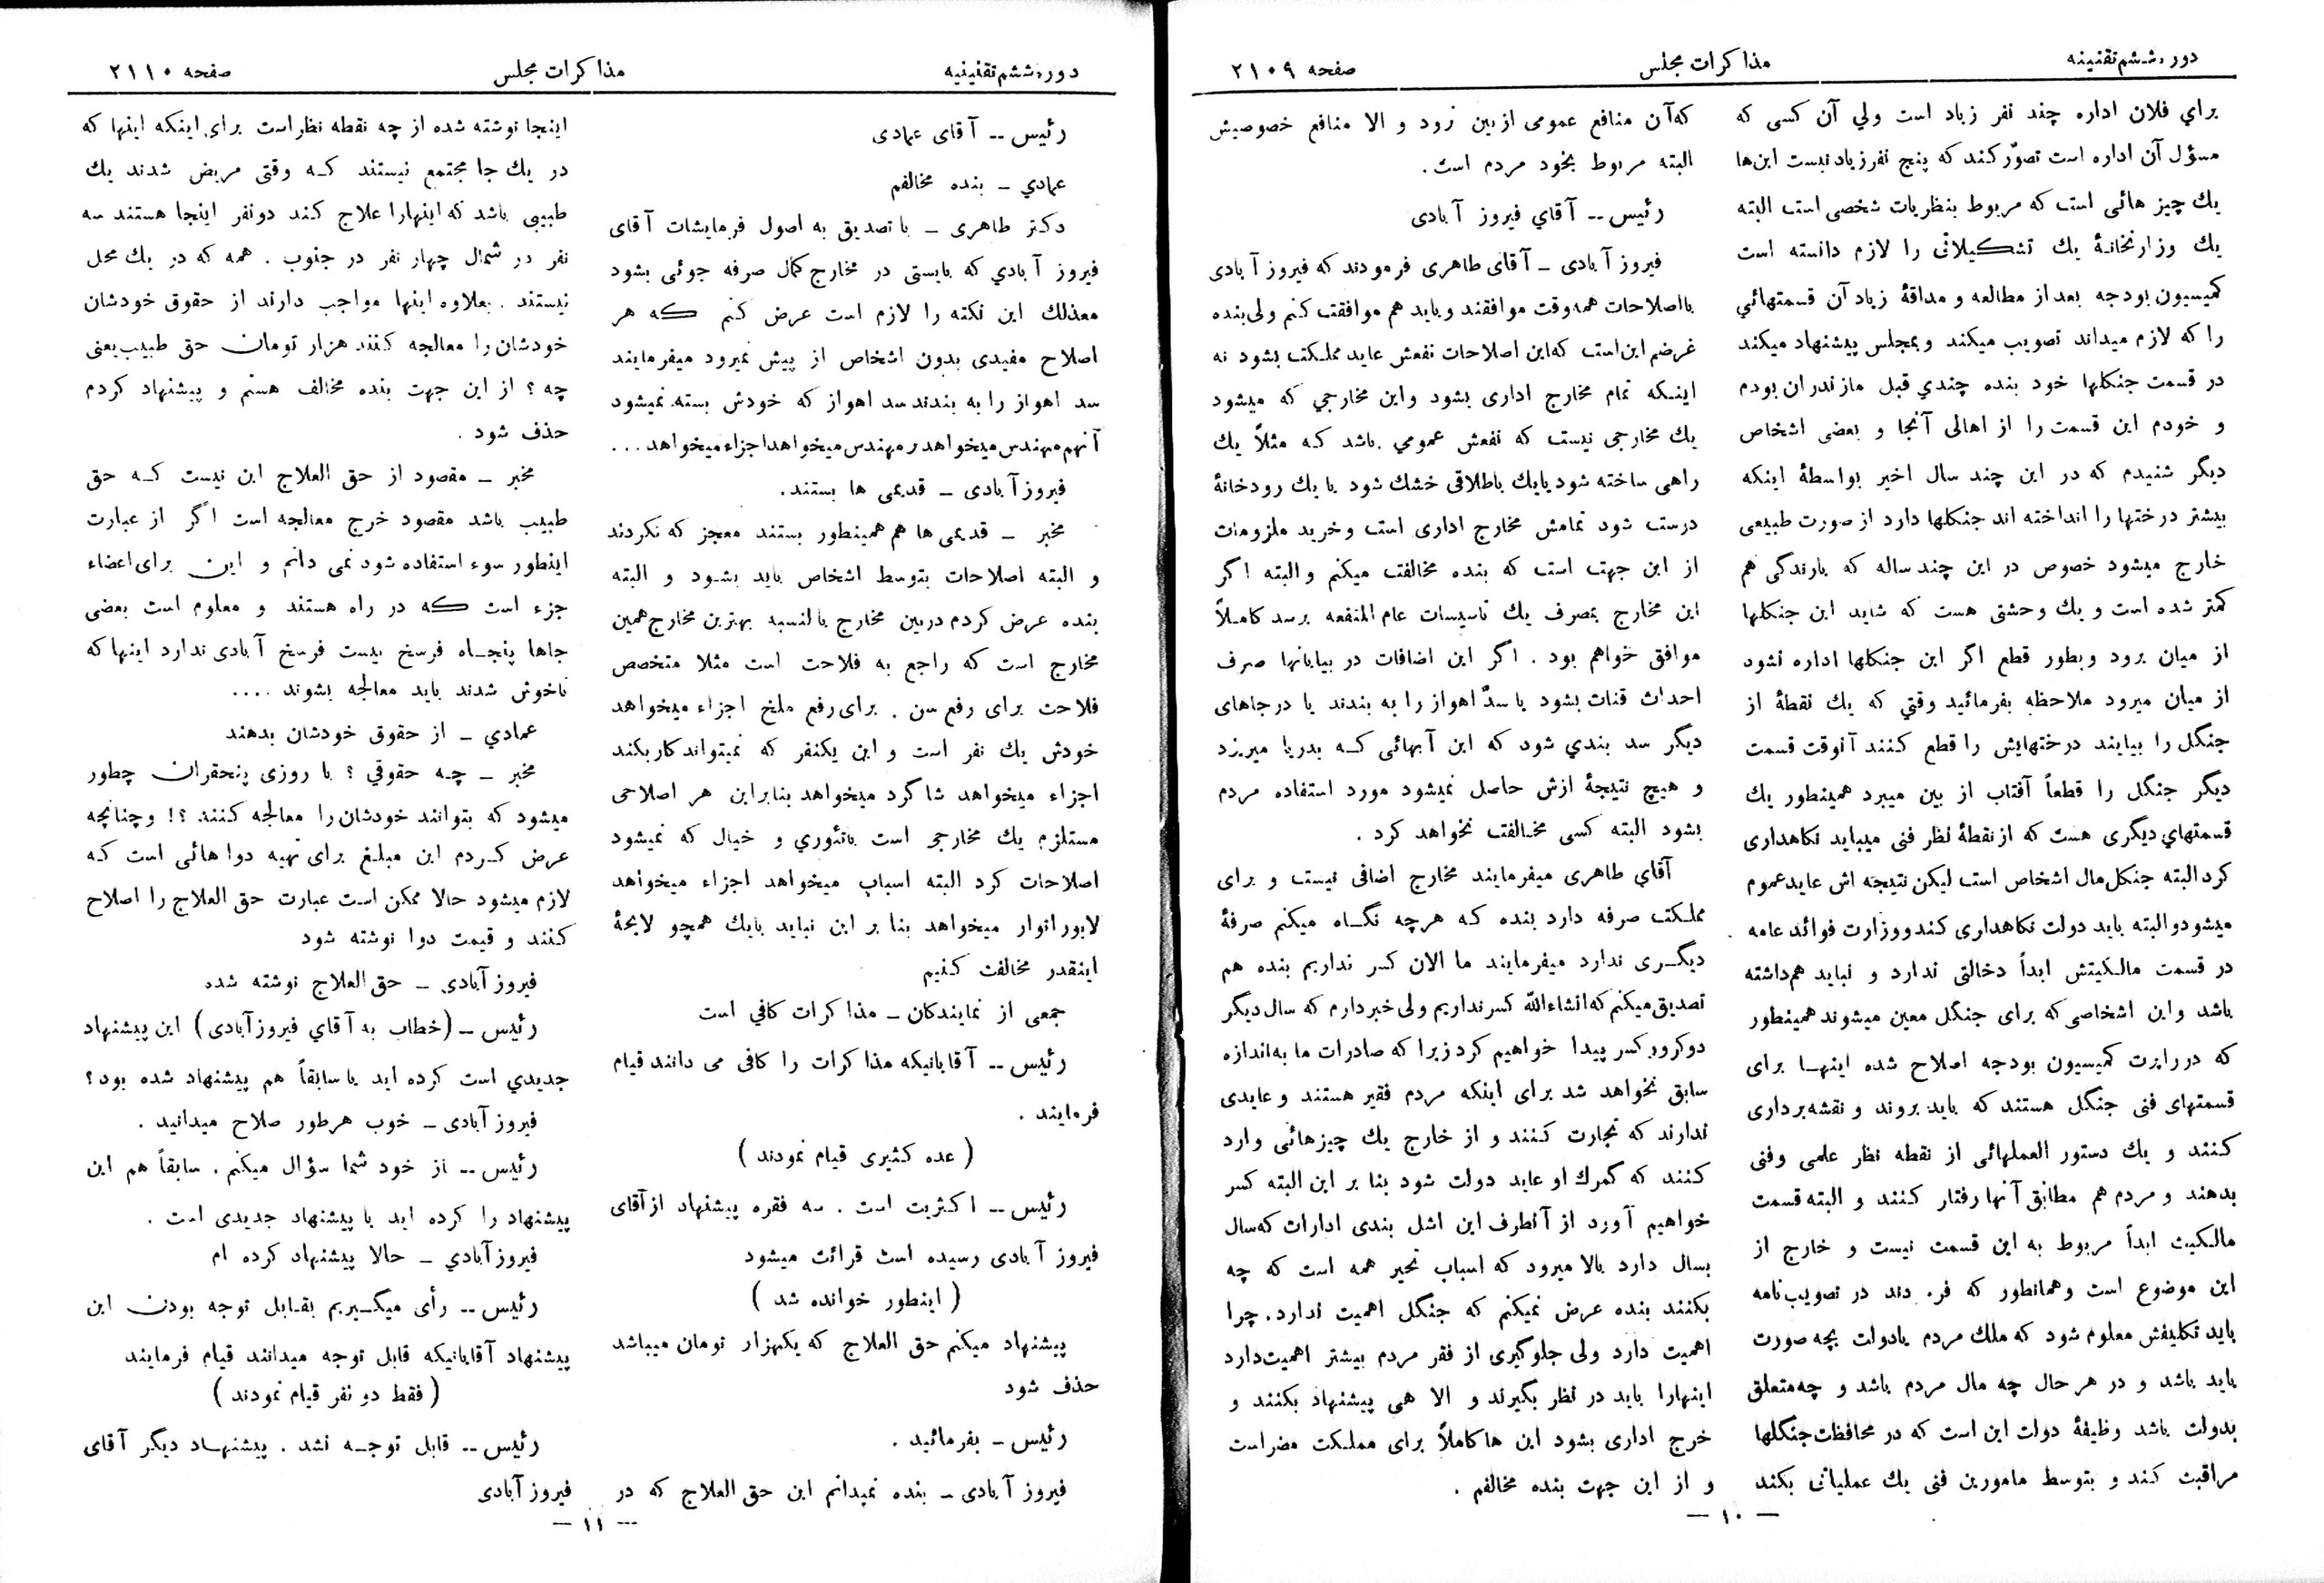 دوره ششم تقنینه
مذاکرات مجلس
صفحه ۲۱۰۹
برای فلان اداره چند نفر زیاد است ولي آن کسی که
مسؤل آن اداره است تصوّر کند که پنج نفر زیاد نیست این‌ها
یك چیز هائی است که مربوط بنظریات شخصی است البته
یك وزارتخانهٔ یك تشکیلاتی را لازم دانسته است
کمیسیون بودجه بعد از مطالعه و مداقهٔ زیاد آن قسمتهائي
را که لازم میداند تصویب میکند و بمجلس پیشنهاد میکند
در قسمت جنگلها خود بنده چندي قبل مازندران بودم
و خودم این قسمت را از اهالی آنجا و بعضی اشخاص
دیگر شنیدم که در این چند سال اخیر بواسطهٔ اینکه
بیشتر درختها را انداخته اند جنگلها دارد از صورت طبیعی
خارج میشود خصوص در این چند ساله که بارندگی هم
کمتر شده است و یك وحشتی هست که شاید این جنگلها
از میان برود وبطور قطع اگر این جنگلها اداره نشود
از میان میرود ملاحظه بفرمائید وقتي که یك نقطهٔ از
جنگل را بیایند درختهایش را قطع کنند آنوقت قسمت
دیگر جنگل را قطعاً آفتاب از بین میبرد همینطور یك
قسمتهاي دیگری هست که از نقطهٔ نظر فنی میباید نگاهداری
کرد البته جنگل مال اشخاص است لیکن نتیجه اش عاید عموم
میشود و البته باید دولت نگاهداری کند و وزارت فوائد عامه
در قسمت مالکیتش ابداً دخالتی ندارد و نباید هم داشته
باشد واین اشخاصی که برای جنگل معین میشوند همینطور
که در راپرت کمیسیون بودجه اصلاح شده اینهـا برای
قسمتهای فنی جنگل هستند که باید بروند و نقشه برداری
کنند و یك دستور العملهائی از نقطه نظر علمی وفنی
بدهند و مردم هم مطابق آنها رفتار کنند و البته قسمت
مالکیت ابداً مربوط به این قسمت نیست و خارج از
این موضوع است وهمانطور که فر. دند در تصویب نامه
باید تکلیفش معلوم شود که ملك مردم یا دولت بچه صورت
باید باشد و در هر حال چه مال مردم باشد و چه متعلق
بدولت باشد وظیفهٔ دولت این است که در محافظت جنگلها
مراقبت کند و بتوسط مامورین فنی یك عملیاتی بکند
که آن منافع عمومی از بین نرود و الا منافع خصوصیش
البته مربوط بخود مردم است.
رئیس -- آقاي فیروز آبادی
فیروز آبادی ـ آقای طاهری فرمودند که فیروز آبادی
با اصلاحات همه وقت موافقند و باید هم موافقت کنم ولی بنده
غرضم این است که این اصلاحات نفعش عاید مملکت بشود نه
اینـکه تمام مخارج اداری بشود واین مخارجي که میشود
یك مخارجی نیست که نفعش عمومي باشد کـه مثلاً یك
راهی ساخته شود یا یك باطلاقی خشك شود یا یك رودخانهٔ
درست شود تمامش مخارج اداری است و خرید ملزومات
از این جهت است که بنده مخالفت میکنم و البته اگر
این مخارج بمصرف یك تاسیسات عام المنفعه برسد کامـلاً
موافق خواهم بود . اگر این اضافات در بیابانها صرف
احداث قنات بشود یا سدّ اهواز را به بندند یا در جاهای
دیگر سد بندي شود که این آبهائی کـه بدریا میریزد
و هیچ نتیجهٔ ازش حاصل نمیشود مورد استفاده مردم
بشود البته کسی مخـالفت نخواهد کرد .
آقاي طاهری میفرمایند مخارج اضافی نیست و برای
مملکت صرفه دارد بنده کـه هرچه نگـاه میکنم صرفهٔ
دیگـری ندارد میفرمایند ما الان کسر نداریم بنده هم
تصدیق میکنم که انشاءالله کسر نداریم ولی خبر دارم که سال دیگر
دوکرور کسر پیدا خواهیم کرد زیرا که صادرات ما به اندازه
سابق نخواهد شد برای اینکه مردم فقیر هستند و عایدی
ندارند که تجارت کنند و از خارج یك چیز هائی وارد
کنند که گمرك او عاید دولت شود بنا بر این البته کسر
خواهیم آورد از آنطرف این اشل بندی ادارات که سال
بسال دارد بالا میرود که اسباب تحیر همه است که چه
بکنند بنده عرض نمیکنم که جنگل اهمیت ندارد. چرا
اهمیت دارد ولی جلوگیری از فقر مردم بیشتر اهمیت دارد
اینهارا باید در نظر بگیرند و الا هی پیشنهاد بکنند و
خرج اداری بشود این ها کاملاً برای مملکت مضر است
و از این جهت بنده مخالفم .
— ۱۰ —
دوره ششم تقنینیه
مذاکرات مجلس
صفحه ۲۱۱۰
رئیس -- آقای عمادی
عمادي ـ بنده مخالفم
دکتر طاهری ـ با تصدیق به اصول فرمایشات آقای
فیروز آبادي که بایستی در مخارج کمال صرفه جوئی بشود
معذلك این نکته را لازم است عرض کنم کـه هر
اصلاح مفیدی بدون اشخاص از پیش نمیرود میفرمایند
سد اهواز را به بندند سد اهواز که خودش بسته نمیشود
آنهم مهندس میخواهد ر مهندس میخواهد اجزاء میخواهد...
فیروز آبادی ـ قدیمی ها بستند.
مخبر ـ قدیمی ها هم همینطور بستند معجز که نکردند
و البته اصلاحات بتوسط اشخاص باید بشود و البته
بنده عرض کردم در بین مخارج بالنسبه بهترین مخارج همین
مخارج است که راجع به فلاحت است مثلا متخصص
فلاحت برای رفع سن . برای رفع ملخ اجزاء میخواهد
خودش یك نفر است و این یکنفر که نمیتواند کار بکند
اجزاء میخواهد شاگرد میخواهد بنابراین هر اصلاحی
مستلزم یك مخارجی است باتئوري و خیال که نمیشود
اصلاحات کرد البته اسباب میخواهد اجزاء میخواهد
لابوراتوار میخواهد بنا بر این نباید بایك همچو لایحهٔ
اینقدر مخالفت کنیم
جمعی از نمایندکان ـ مذاکرات کافي است
رئیس -- آقایانیکه مذاکرات را کافی می دانند قیام
فرمایند .
( عده کثیری قیام نمودند )
رئیس -- اکثریت است . سه فقره پیشنهاد از آقای
فیروز آبادی رسیده است قرائت میشود
( اینطور خوانده شد )
پیشنهاد میکنم حق العلاج که یکهزار تومان میباشد
حذف شود
رئیس ـ بفرمائید .
فیروز آبادی ـ بنده نمیدانم این حق العلاج که در
اینجا نوشته شده از چه نقطه نظر است برای اینکه اینها که
در یك جا مجتمع نیستند کـه وقتی مریض شدند یك
طبیبی باشد که اینهارا علاج کند دونفر اینجا هستند سه
نفر در شمال چهار نفر در جنوب . همه که در یك محل
نیستند . بعلاوه اینها مواجب دارند از حقوق خودشان
خودشان را معالجه کنند هزار تومان حق طبیب یعنی
چه ؟ از این جهت بنده مخالف هستم و پیشنهاد کردم
حذف شود .
مخبر ـ مقصود از حق العلاج این نیست کـه حق
طبیب باشد مقصود خرج معالجه است اگر از عبارت
اینطور سوء استفاده شود نمی دانم و این برای اعضاء
جزء است کـه در راه هستند و معلوم است بعضی
جاها پنجـاه فرسخ بیست فرسخ آبادی ندارد اینها که
ناخوش شدند باید معالجه بشوند ....
عمادي ـ از حقوق خودشان بدهند
مخبر ـ چـه حقوقي ؟ با روزی پنجقران چطور
میشود که بتوانند خودشان را معالجه کنند ؟! و چنانچه
عرض کـردم این مبلغ برای تهیه دوا هائی است کـه
لازم میشود حالا ممکن است عبارت حق العلاج را اصلاح
کنند و قیمت دوا نوشته شود
فیروز آبادی ـ حق العلاج نوشته شده
رئیس ـ (خطاب به آقاي فیروز آبادی) این پیشنهاد
جدیدي است کرده اید یا سابقاً هم پیشنهاد شده بود؟
فیروز آبادی ـ خوب هرطور صلاح میدانید .
رئیس -- از خود شما سؤال میکنم . سابقاً هم این
پیشنهاد را کرده اید یا پیشنهاد جدیدی است .
فیروز آبادي ـ حالا پیشنهاد کرده ام
رئیس -- رأی میگیریم بقـابل توجه بودن این
پیشنهاد آقایانیکه قابل توجه میدانند قیام فرمایند
( فقط دو نفر قیام نمودند )
رئیس -- قابل توجـه نشد . پیشنهـاد دیگر آقای
فیروز آبادی
— ۱۱ —